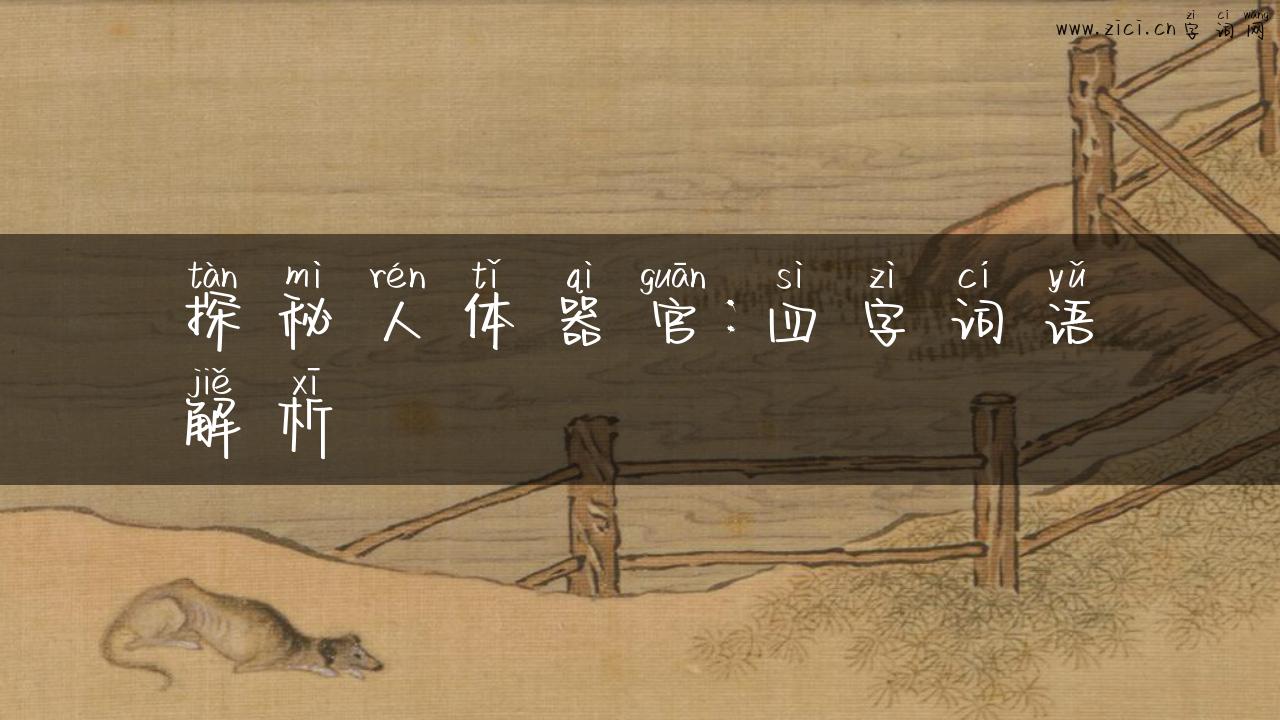 zì cí wǎng
www.zici.cn字词网
tàn mì rén tǐ qì guān sì zì cí yǔ
探秘人体器官:四字词语
jiě xī
解析